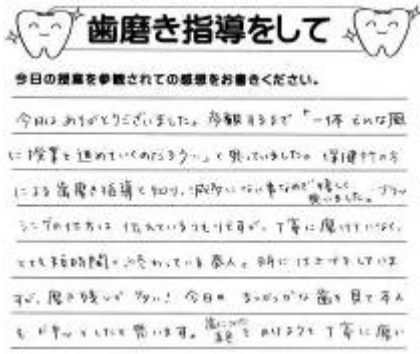 歯磨き指導をして
今日の授業を参観されての感想をお書きください。
今日はありがとうございました。参観するまで「一体どんな風
に授業を進めていくのだろう…」と思っていました。保健所の方
による歯磨き指導と知り、滅多にない事なので嬉しく思いました。ブラッ
シングの仕方は伝えているつもりですが、丁寧に磨けていなく、
とても短時間で終わっている本人。時に仕上げをしていま
すが、磨き残しが多い！今日の まっかっかな歯を見て本人
もドキッとしたと思います。 をかけようと丁寧に磨い